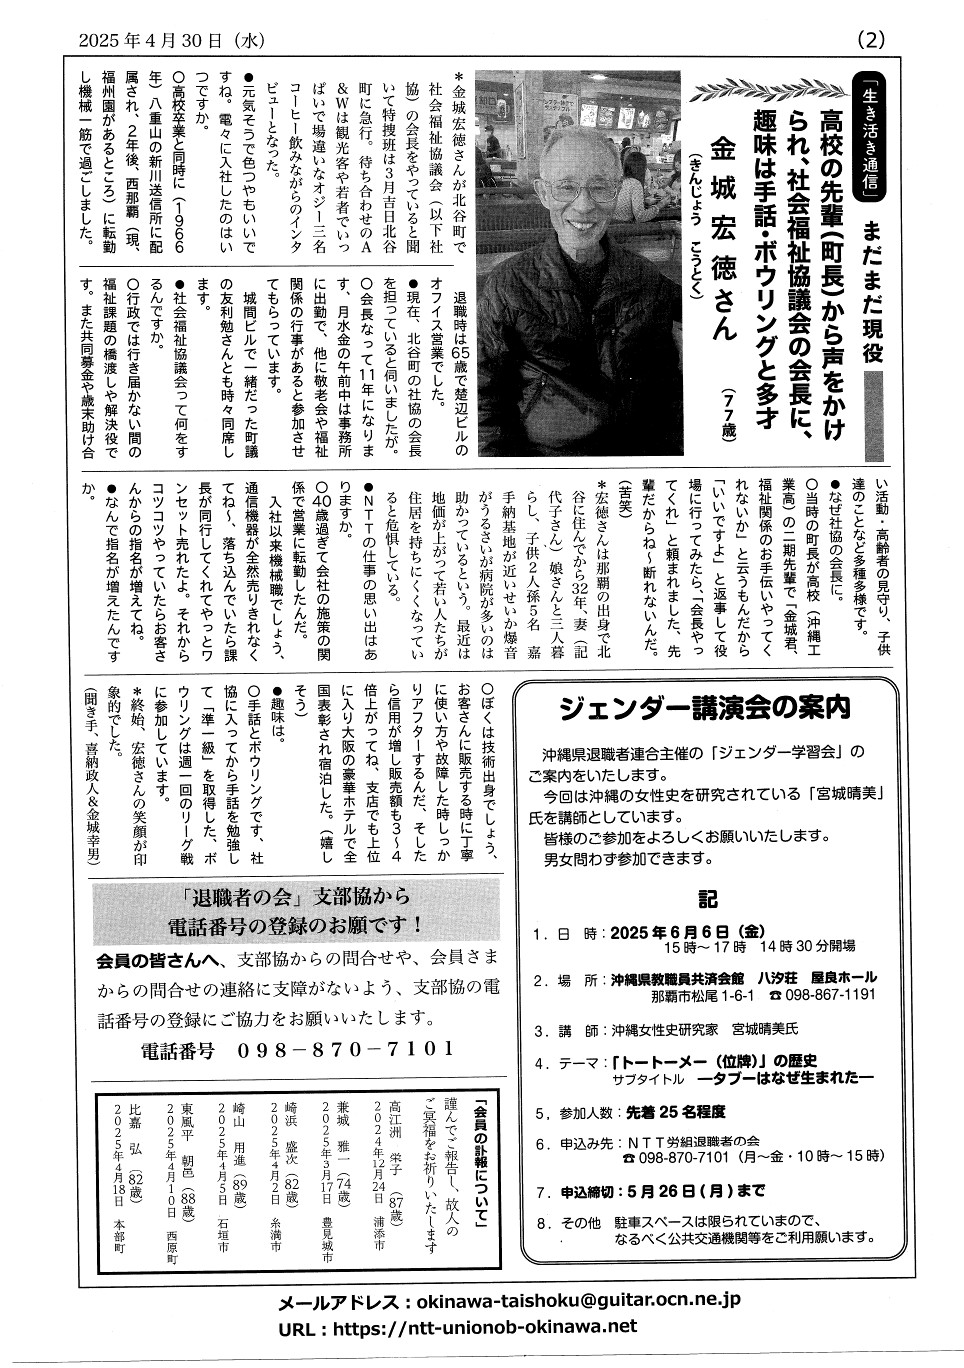 2025年4月30日（水）
（2）
「生き活き通信」
まだまだ現役
高校の先輩（町長）から声をかけ
られ、社会福祉協議会の会長に、
趣味は手話・ボウリングと多才
金城宏徳さん
（77歳）
（きんじょう こうとく）
＊金城宏徳さんが北谷町で
社会福祉協議会（以下社
協）の会長をやっていると聞
いて特捜班は３月吉日北谷
町に急行。待ち合わせのA
&Wは観光客や若者でいっ
ぱいで場違いなオジー三名
コーヒー飲みながらのインタ
ビューとなった。
●元気そうで色つやもいいで
すね。電々に入社したのはい
つですか。
〇高校卒業と同時に（1966
年）八重山の新川送信所に配
属され、2年後、西那覇（現、
福州園があるところ）に転勤
し機械一筋で過ごしました。
退職時は65歳で楚辺ビルの
オフイス営業でした。
●現在、北谷町の社協の会長
を担っていると伺いましたが。
〇会長なって11年になりま
す、月水金の午前中は事務所
に出勤で、他に敬老会や福祉
関係の行事があると参加させ
てもらっています。
城間ビルで一緒だった町議
の友利勉さんとも時々同席し
ます。
●社会福祉協議会って何をす
るんですか。
〇行政では行き届かない間の
福祉課題の橋渡しや解決役で
す。また共同募金や歳末助け合
い活動・高齢者の見守り、子供
達のことなど多種多様です。
●なぜ社協の会長に。
〇当時の町長が高校（沖縄工
業高）の二期先輩で「金城君、
福祉関係のお手伝いやってく
れないか」と云うもんだから
「いいですよ」と返事して役
場に行ってみたら、「会長やっ
てくれ」と頼まれました、先
輩だからね～断れないんだ。
（苦笑）
＊宏徳さんは那覇の出身で北
谷に住んでから32年、妻（記
代子さん）娘さんと三人暮
らし、子供２人孫５名 嘉
手納基地が近いせいか爆音
がうるさいが病院が多いのは
助かっているという。最近は
地価が上がって若い人たちが
住居を持ちにくくなってい
ると危惧している。
●NTTの仕事の思い出はあ
りますか。
〇40歳過ぎて会社の施策の関
係で営業に転勤したんだ。
入社以来機械職でしょう、
通信機器が全然売りきれなく
てね～、落ち込んでいたら課
長が同行してくれてやっとワ
ンセット売れたよ。それから
コツコツやっていたらお客さ
んからの指名が増えてね。
●なんで指名が増えたんです
か。
〇ぼくは技術出身でしょう、
お客さんに販売する時に丁寧
に使い方や故障した時しっか
りアフターするんだ、そした
ら信用が増し販売額も3～4
倍上がってね、支店でも上位
に入り大阪の豪華ホテルで全
国表彰され宿泊した。（嬉し
そう）
●趣味は。
〇手話とボウリングです、社
協に入ってから手話を勉強し
て「準一級」を取得した、ボ
ウリングは週一回のリーグ戦
に参加しています。
＊終始、宏徳さんの笑顔が印
象的でした。
（聞き手、喜納政人&金城幸男）
「退職者の会」支部協から
電話番号の登録のお願です！
会員の皆さんへ、支部協からの問合せや、会員さま
からの問合せの連絡に支障がないよう、支部協の電
話番号の登録にご協力をお願いいたします。
電話番号 098－870－7101
「会員の訃報について」
謹んでご報告し、故人の
ご冥福をお祈りいたします
高江洲 栄子（87歳）
2024年12月24日 浦添市
兼城 雅一（74歳）
2025年3月17日 豊見城市
崎浜 盛次（82歳）
2025年4月2日 糸満市
崎山 用進（89歳）
2025年4月5日 石垣市
東風平 朝邑（88歳）
2025年4月10日 西原町
比嘉 弘（82歳）
2025年4月18日 本部町
ジェンダー講演会の案内
沖縄県退職者連合主催の「ジェンダー学習会」の
ご案内をいたします。
今回は沖縄の女性史を研究されている「宮城晴美」
氏を講師としています。
皆様のご参加をよろしくお願いいたします。
男女問わず参加できます。
記
1．日 時：2025年6月6日（金）
15時～17時 14時30分開場
2．場 所：沖縄県教職員共済会館 八汐荘 屋良ホール
那覇市松尾1-6-1 ☎098-867-1191
3．講 師：沖縄女性史研究家 宮城晴美氏
4．テーマ：「トートーメー（位牌）」の歴史
サブタイトル ―タブーはなぜ生まれた―
5．参加人数：先着25名程度
6．申込み先：NTT労組退職者の会
☎098-870-7101（月～金・10時～15時）
7．申込締切：5月26日(月)まで
8．その他 駐車スペースは限られていまので、
なるべく公共交通機関等をご利用願います。
メールアドレス：okinawa-taishoku@guitar.ocn.ne.jp
URL：https://ntt-unionob-okinawa.net